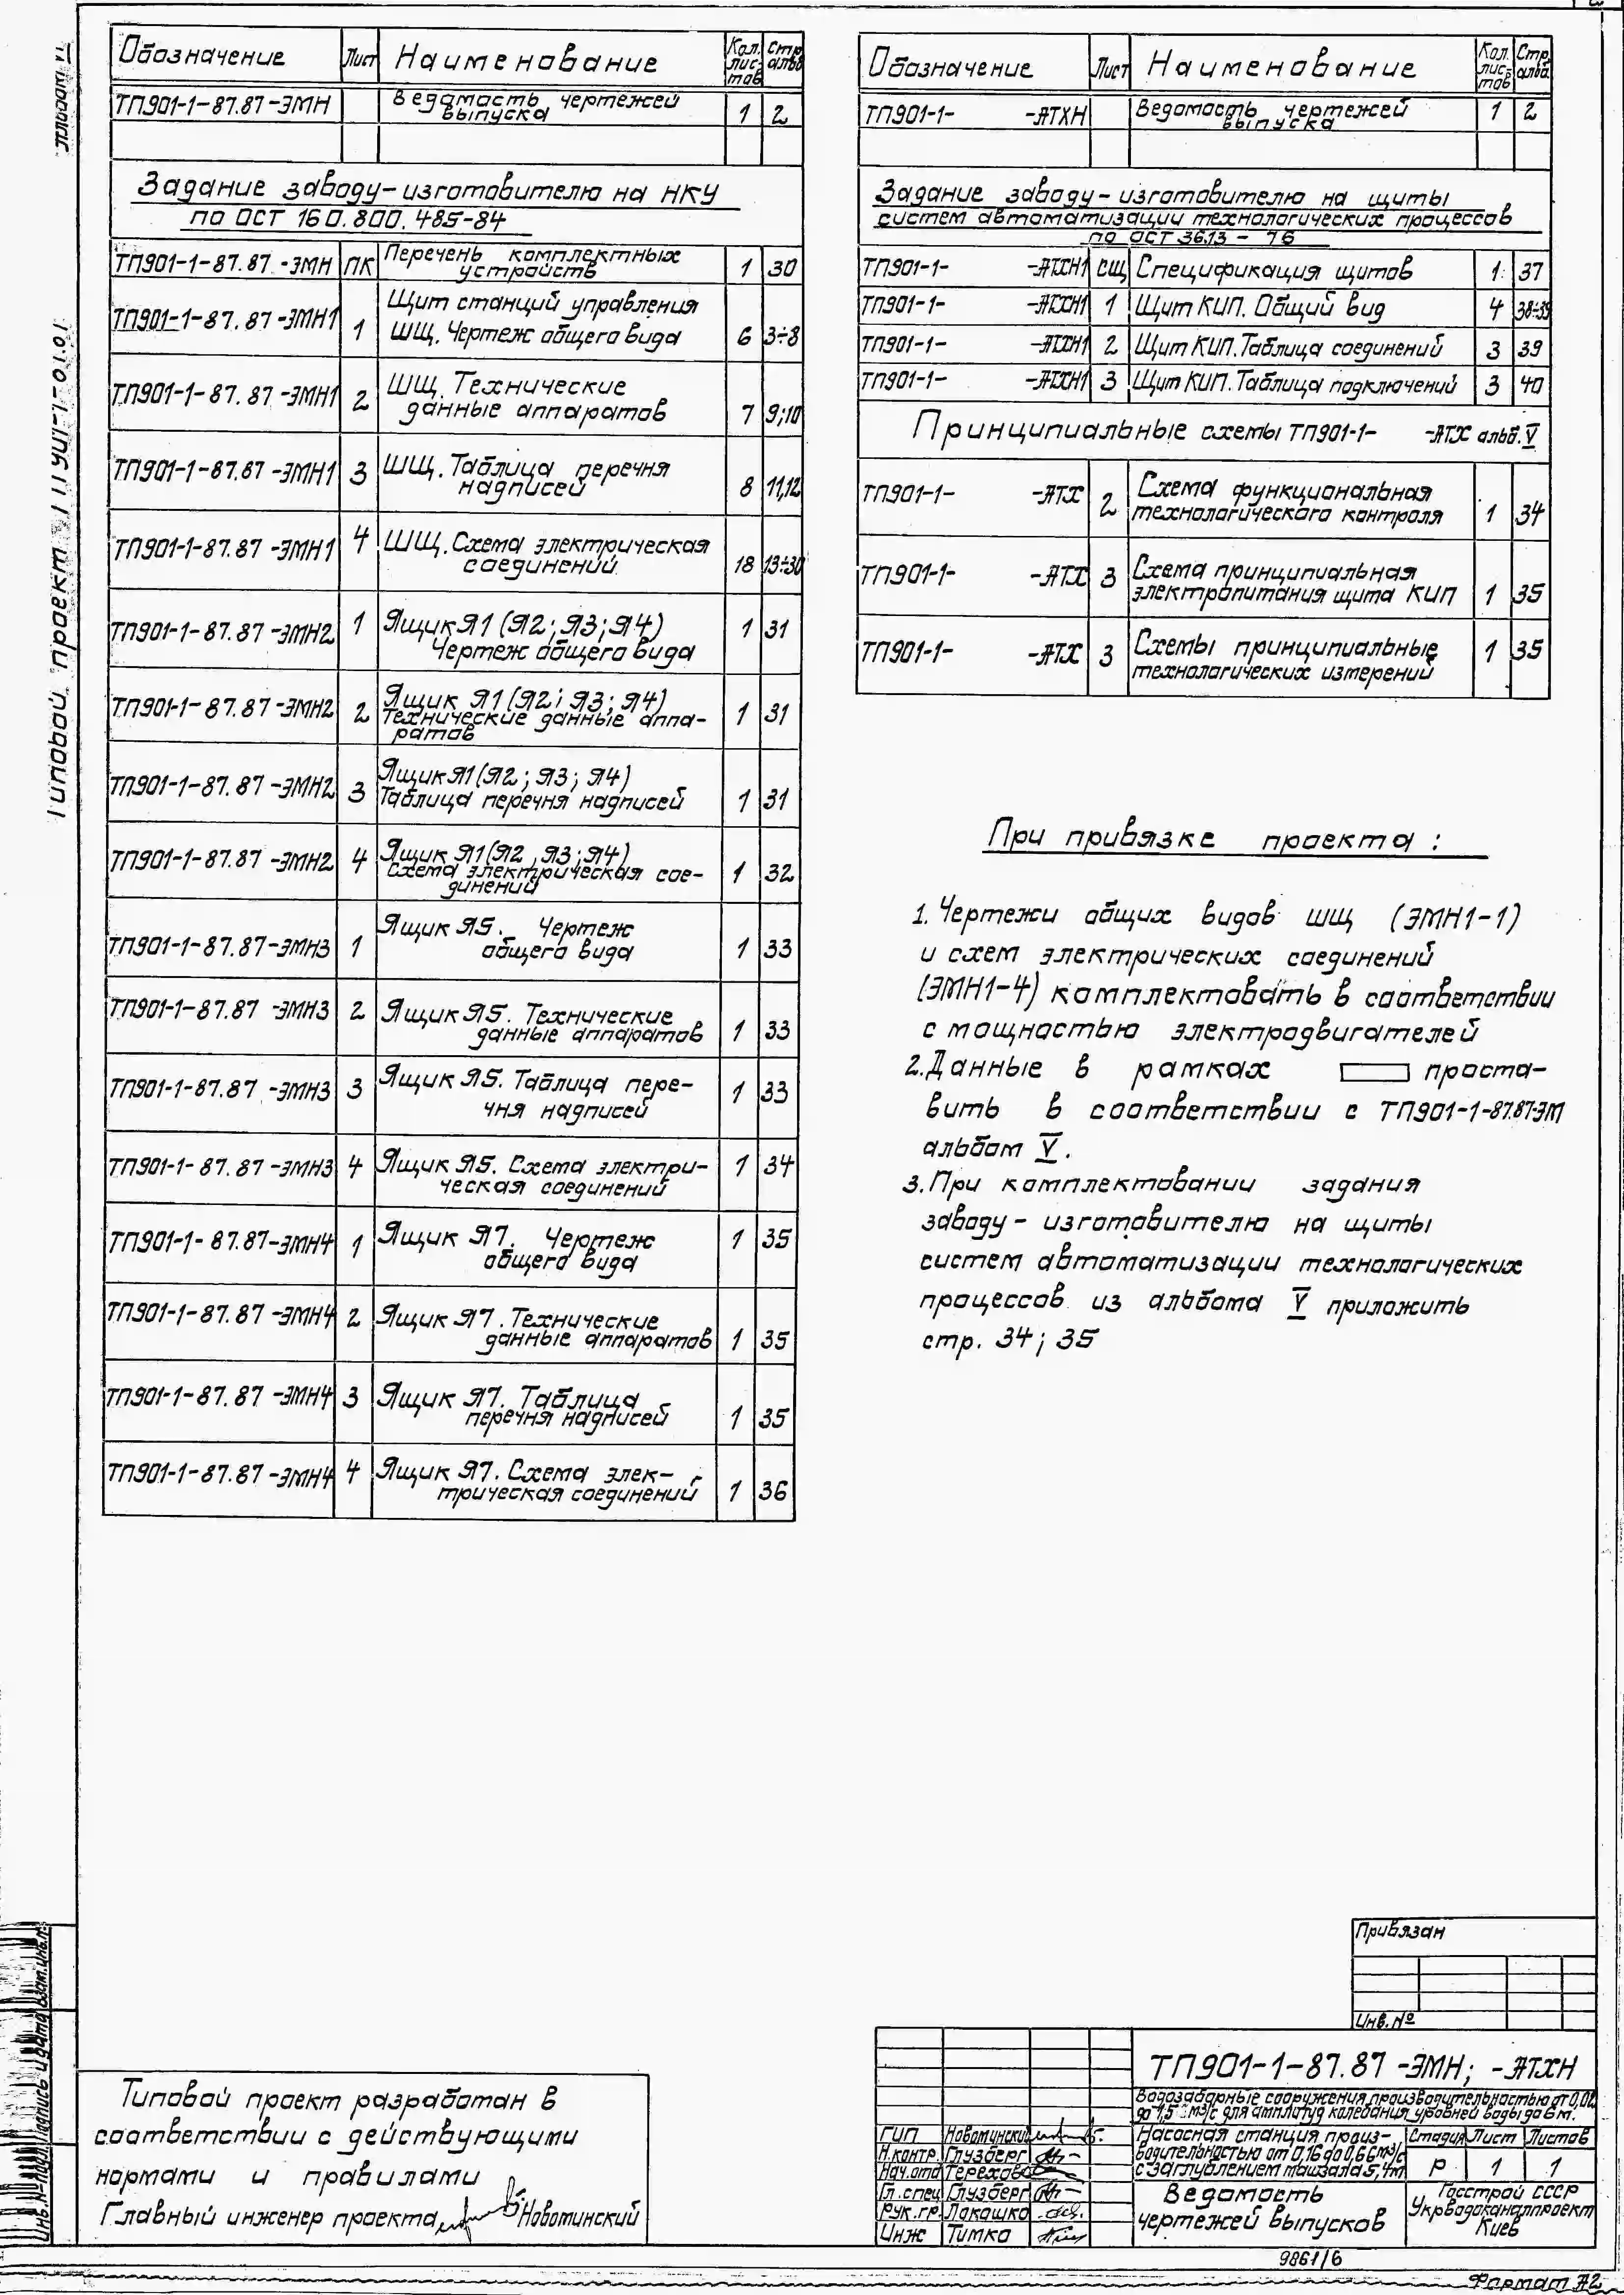 Обозначение Лист Наименование Кол. листов Стр. альб.
ТП901-1-87.87-ЭМН Ведомость чертежей 1 2
выпуска
Задание заводу-изготовителю на НКУ
по ОСТ 160.800.485-84
ТП901-1-87.87-ЭМН ПК Перечень комплектных 1 30
устройств
ТП901-1-87.87-ЭМН1 1 Щит станций управления
ШЩ. Чертеж общего вида 6 3÷8
ТП901-1-87.87-ЭМН1 2 ШЩ. Технические
данные аппаратов 7 9;10
ТП901-1-87.87-ЭМН1 3 ШЩ. Таблица перечня
надписей 8 11,12
ТП901-1-87.87-ЭМН1 4 ШЩ. Схема электрическая
соединений 18 13÷30
ТП901-1-87.87-ЭМН2 1 Ящик Я1 (Я2; Я3; Я4) 1 31
Чертеж общего вида
ТП901-1-87.87-ЭМН2 2 Ящик Я1 (Я2; Я3; Я4)
Технические данные аппа- 1 31
ратов
ТП901-1-87.87-ЭМН2 3 Ящик Я1 (Я2; Я3; Я4)
Таблица перечня надписей 1 31
ТП901-1-87.87-ЭМН2 4 Ящик Я1 (Я2, Я3; Я4)
Схема электрическая сое- 1 32
динений
ТП901-1-87.87-ЭМН3 1 Ящик Я5. Чертеж
общего вида 1 33
ТП901-1-87.87-ЭМН3 2 Ящик Я5. Технические
данные аппаратов 1 33
ТП901-1-87.87-ЭМН3 3 Ящик Я5. Таблица пере-
чня надписей 1 33
ТП901-1-87.87-ЭМН3 4 Ящик Я5. Схема электри- 1 34
ческая соединений
ТП901-1-87.87-ЭМН4 1 Ящик Я7. Чертеж 1 35
общего вида
ТП901-1-87.87-ЭМН4 2 Ящик Я7. Технические
данные аппаратов 1 35
ТП901-1-87.87-ЭМН4 3 Ящик Я7. Таблица
перечня надписей 1 35
ТП901-1-87.87-ЭМН4 4 Ящик Я7. Схема элек-
трическая соединений 1 36
Обозначение Лист Наименование Кол. листов Стр. альб.
ТП901-1- -АТХН Ведомость чертежей 1 2
выпуска
Задание заводу-изготовителю на щиты
систем автоматизации технологических процессов
по ОСТ 36.13-76
ТП901-1- -АТХН1 СЩ Спецификация щитов 1 37
ТП901-1- -АТХН1 1 Щит КИП. Общий вид 4 38÷39
ТП901-1- -АТХН1 2 Щит КИП. Таблица соединений 3 39
ТП901-1- -АТХН1 3 Щит КИП. Таблица подключений 3 40
Принципиальные схемы ТП901-1- -АТХ альб. V
ТП901-1- -АТХ 2 Схема функциональная
технологического контроля 1 34
ТП901-1- -АТХ 3 Схема принципиальная
электропитания щита КИП 1 35
ТП901-1- -АТХ 3 Схемы принципиальные 1 35
технологических измерений
При привязке проекта:
1. Чертежи общих видов ШЩ (ЭМН1-1)
и схем электрических соединений
(ЭМН1-4) комплектовать в соответствии
с мощностью электродвигателей
2. Данные в рамках проста-
вить в соответствии с ТП901-1-87.87-ЭМ
альбом V.
3. При комплектовании задания
заводу-изготовителю на щиты
систем автоматизации технологических
процессов из альбома V приложить
стр. 34; 35
Типовой проект
Инв.№ подл. Подпись и дата Взам.инв.№
Типовой проект разработан в
соответствии с действующими
нормами и правилами
Главный инженер проекта Новоминский
Привязан
Инв. №
ТП901-1-87.87-ЭМН; -АТХН
Водозаборные сооружения производительностью от 0,02
до 1,5 м3/с для амплитуд колебания уровней воды до 6 м.
ГИП Новоминский
Н.контр. Глузберг
Нач.отд Терехова
Гл.спец Глузберг
Рук.гр. Лакашко
Инж Тимко
Насосная станция произ-
водительностью от 0,16 до 0,6 см3/с
с заглублением машзала 5,4м
Стадия Лист Листов
Р 1 1
Ведомость
чертежей выпусков
Госстрой СССР
Укрводоканалпроект
Киев
9861/6
Формат А2